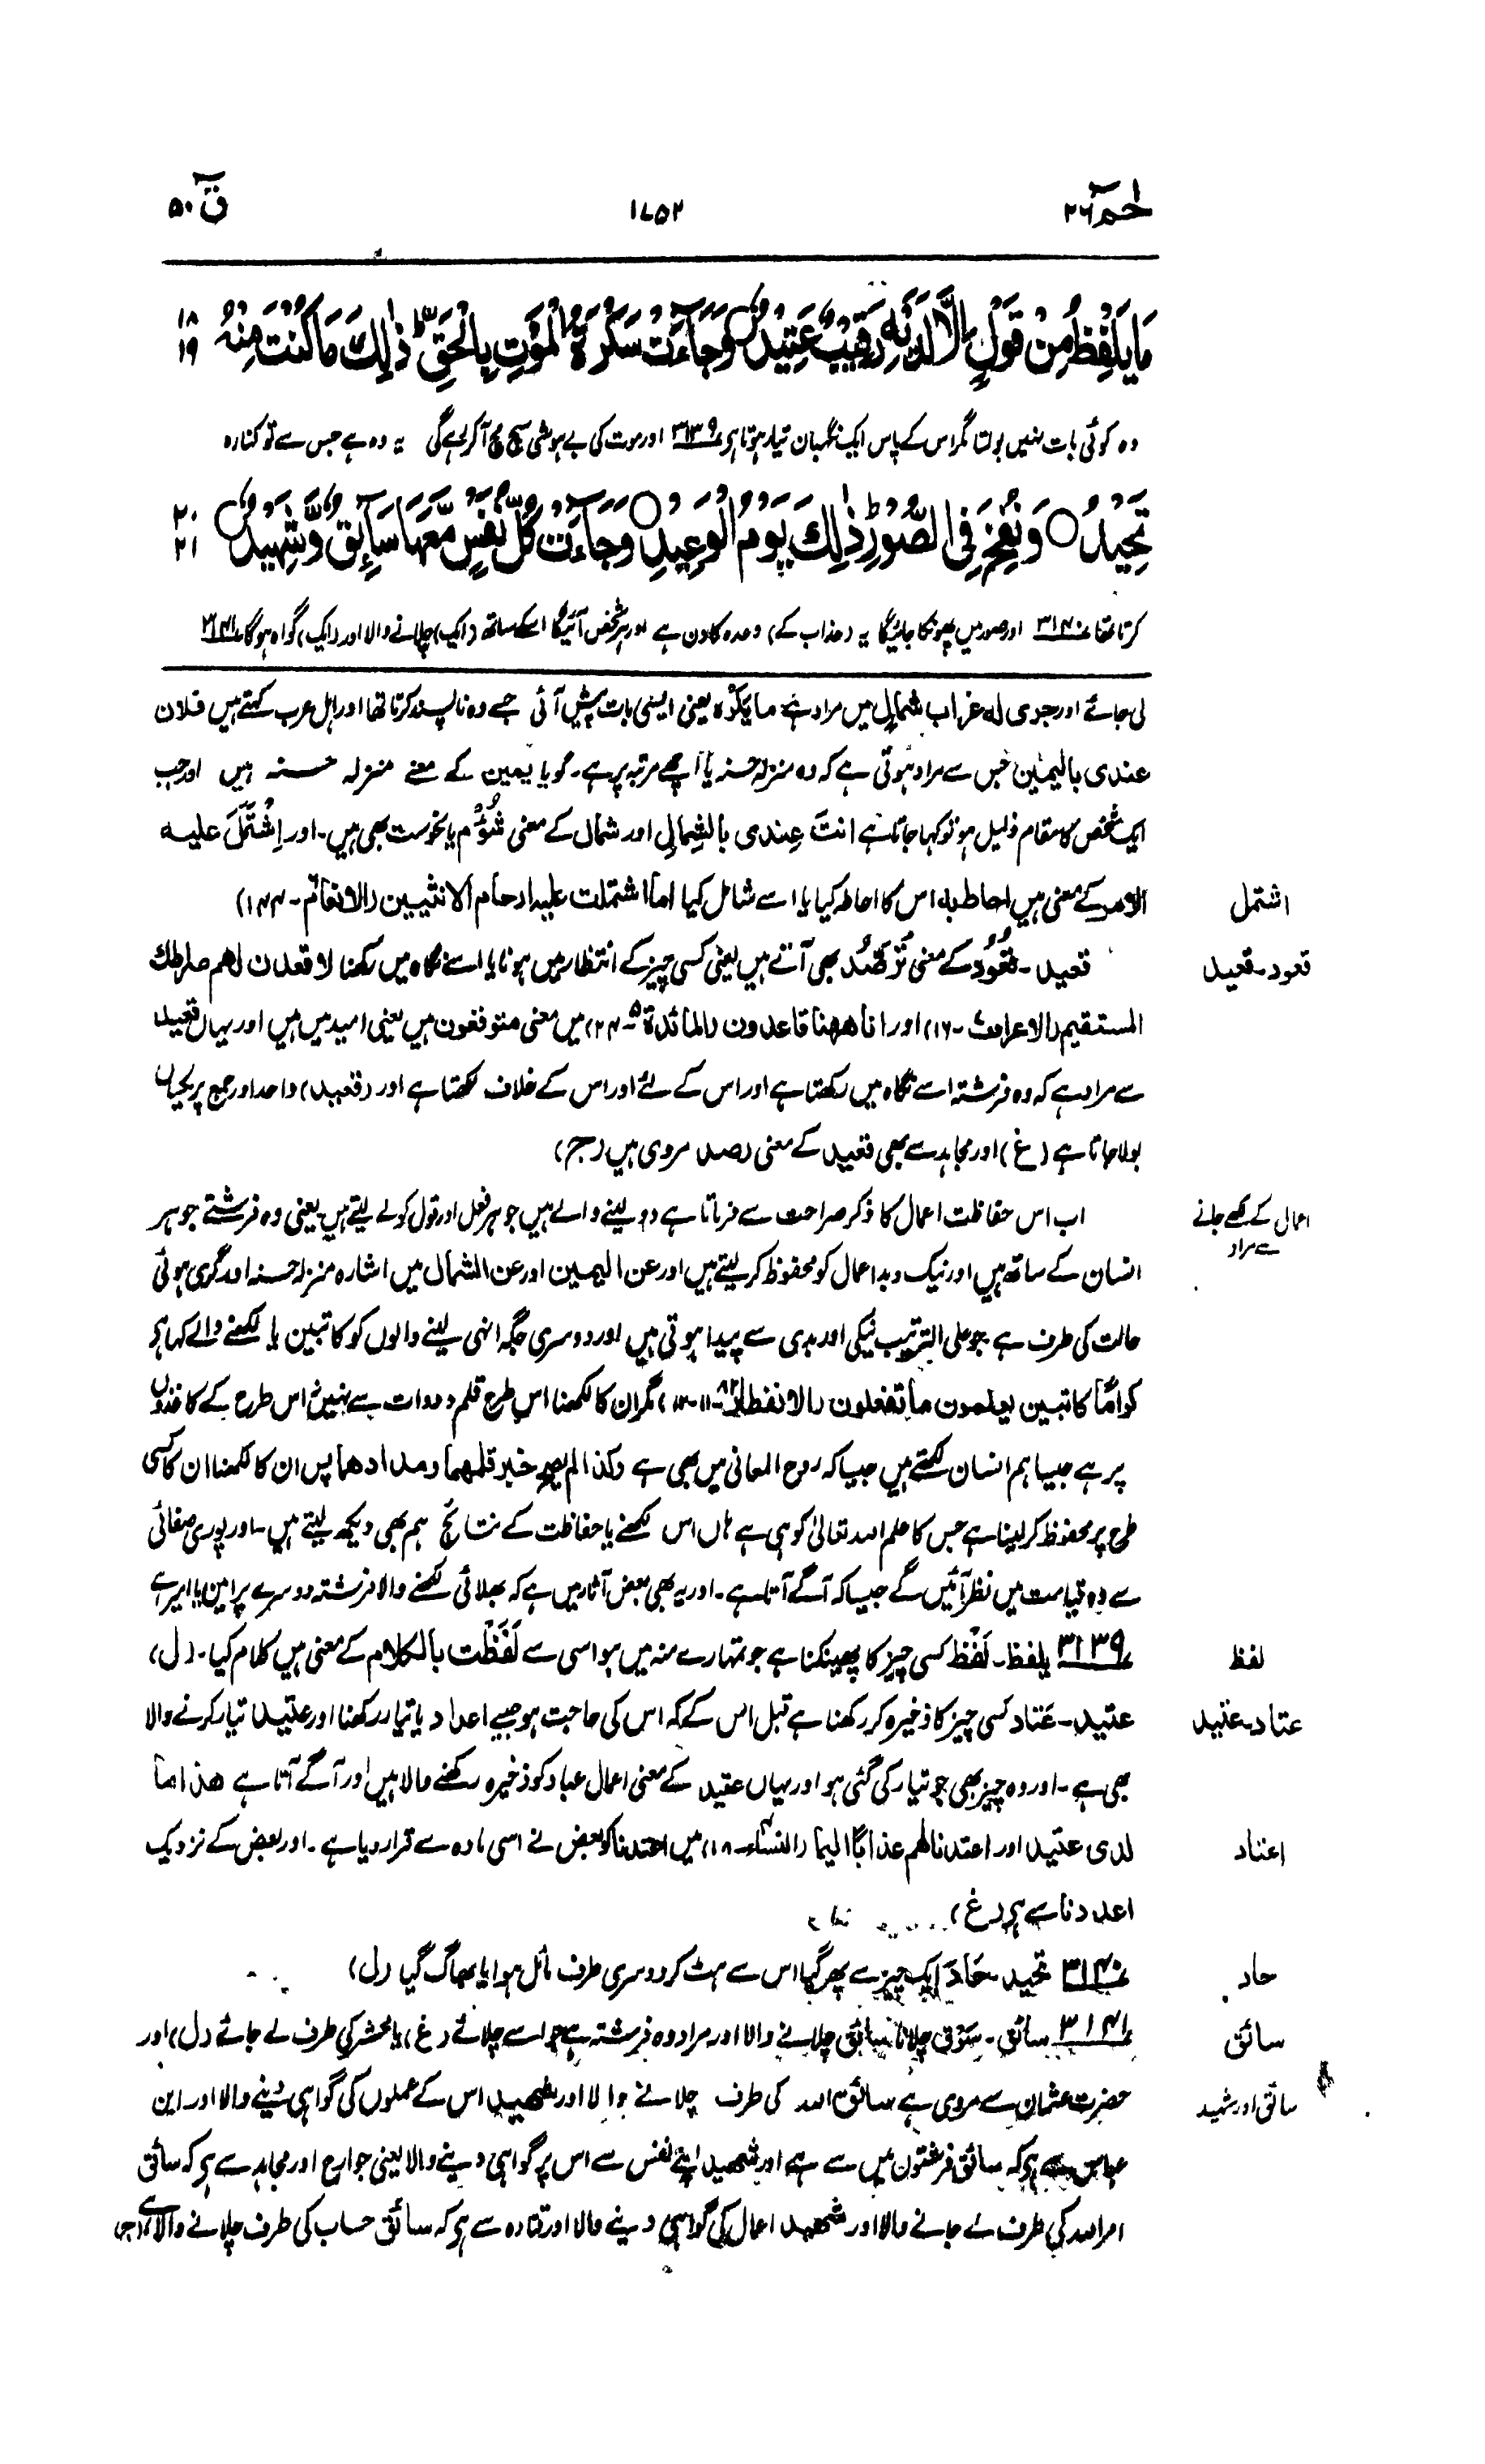 حٰمٓ ۲۶
۱۷۵۲
قٓ ۵۰
مَا يَلْفِظُ مِنْ قَوْلٍ اِلَّا لَدَيْهِ رَقِيْبٌ عَتِيْدٌ ○ وَجَآءَتْ سَكْرَةُ الْمَوْتِ بِالْحَقِّ ؕ ذٰلِكَ مَا كُنْتَ مِنْهُ ۱۸ ۱۹
وہ کوئی بات نہیں بولتا مگر اس کے پاس ایک نگہبان تیار ہوتا ہی ۳۱۳۹ اور موت کی بے ہوشی سچ مچ آکر رہے گی یہ وہ ہے جس سے تو کنارہ
تَحِيْدُ ○ وَنُفِخَ فِى الصُّوْرِ ؕ ذٰلِكَ يَوْمُ الْوَعِيْدِ ○ وَجَآءَتْ كُلُّ نَفْسٍ مَّعَهَا سَآئِقٌ وَّشَهِيْدٌ ○ ۲۰ ۲۱
کرتا تھا ۳۱۴۰ اور صور میں پھونکا جائیگا یہ (عذاب کے) وعدہ کا دن ہے اور ہر شخص آئیگا اسکے ساتھ (ایک) چلانے والا اور (ایک) گواہ ہو گا ۳۱۴۱
لی جائے اور جری لہ غراب شمال میں مراد ہے ما یکرہ یعنی ایسی بات پیش آئی جسے وہ ناپسند کرتا تھا اور اہل عرب کہتے ہیں فلان
عندی بالیمین جس سے مراد ہوتی ہے کہ وہ منزلہ حسنہ یا اچھے مرتبہ پر ہے۔ گویا یمین کے معنے منزلہ حسنہ ہیں اور جب
ایک شخص کا مقام ذلیل ہو تو کہا جاتا ہے انتَ عِندی بالشِمالِ اور شمال کے معنی شُؤم یا نحوست بھی ہیں۔ اور اِشْتَمَلَ علیہ
الامر کے معنی ہیں احاط بہ اس کا احاطہ کیا یا اسے شامل کیا اما اشتملت علیہ ارحام الانثیین (الانعام۔ ۱۴۴)
اشتمل
قعید۔ قُعُود کے معنی تَرَصُّد بھی آتے ہیں یعنی کسی چیز کے انتظار میں ہونا یا اسے نگاہ میں رکھنا لاقعدن لھم صراطک
قعود۔ قعید
المستقیم (الاعراف ۔۱۶) اور انا ھھنا قاعدون (المائدۃ ۵۔۲۴) میں معنی متوقعون ہیں یعنی امید میں ہیں اور یہاں قعید
سے مراد ہے کہ وہ فرشتہ اسے نگاہ میں رکھتا ہے اور اس کے لئے اور اس کے خلاف لکھتا ہے اور (قعید) واحد اور جمع پر یکساں
بولا جاتا ہے (غ) اور مجاہد سے بھی قعید کے معنی رصد مروی ہیں (ج)
اب اس حفاظت اعمال کا ذکر صراحت سے فرماتا ہے دو لینے والے ہیں جو ہر فعل اور قول کو لے لیتے ہیں یعنی وہ فرشتے جو ہر
اعمال کے لکھے جانے
سے مراد
انسان کے ساتھ ہیں اور نیک و بد اعمال کو محفوظ کر لیتے ہیں اور عن الیمین اور عن الشمال میں اشارہ منزلہ حسنہ اور گری ہوئی
حالت کی طرف ہے جو علی الترتیب نیکی اور بدی سے پیدا ہوتی ہیں اور دوسری جگہ انہی لینے والوں کو کاتبین یا لکھنے والے کہا ہے
کراماً کاتبین یعلمون ما تفعلون (الانفطار ۸۲۔ ۱۱-۱۲) مگر ان کا لکھنا اس طرح قلم دوات سے نہیں نہ اس طرح کے کاغذوں
پر ہے جیسا ہم انسان لکھتے ہیں جیسا کہ روح المعانی میں بھی ہے وکذا لم یصح خبر قلمھما ومدادھما پس ان کا لکھنا ان کا کسی
طرح پر محفوظ کر لینا ہے جس کا علم اللہ تعالیٰ کو ہی ہے ہاں اس لکھنے یا حفاظت کے نتائج ہم بھی دیکھ لیتے ہیں۔ اور پوری صفائی
سے وہ قیامت میں نظر آئیں گے جیسا کہ آگے آتا ہے۔ اور یہ بھی بعض آثار میں ہے کہ بھلائی لکھنے والا فرشتہ دوسرے پر امین یا امیر ہے
۳۱۳۹ یلفظ۔ لَفْظ کسی چیز کا پھینکنا ہے جو تمہارے منہ میں ہو اسی سے لَفَظْت بالکلام کے معنی ہیں کلام کیا۔ (ل)
لفظ
عتید۔ عَتاد کسی چیز کا ذخیرہ کر رکھنا ہے قبل اس کے کہ اس کی حاجت ہو جیسے اعداد یا تیار رکھنا اور عتید تیار کرنے والا
عتاد۔ عتید
بھی ہے۔ اور وہ چیز بھی جو تیار کی گئی ہو اور یہاں عتید کے معنی اعمال عباد کو ذخیرہ رکھنے والا ہیں اور آگے آتا ہے ھذا ما
لدی عتید اور اعتدنا لھم عذابًا الیما (النساء ۔۱۸) میں اعتدنا کو بعض نے اسی مادہ سے قرار دیا ہے۔ اور بعض کے نزدیک
اعتاد
اعددنا سے ہے (غ)
۳۱۴۰ تحید۔ حَادَ ایک چیز سے پھر گیا اس سے ہٹ کر دوسری طرف مائل ہوا یا بھاگ گیا (ل)
حاد
۳۱۴۱ سائق۔ سَوْق چلانا سائق چلانے والا اور مراد وہ فرشتہ ہے جو اسے چلائے (غ) یا محشر کی طرف لے جائے (ل) اور
سائق
حضرت عثمان سے مروی ہے سائق اللہ کی طرف چلانے والا اور شھید اس کے عملوں کی گواہی دینے والا اور ابن
سائق اور شہید
عباس سے ہے کہ سائق فرشتوں میں سے ہے اور شھید اپنے نفس سے اس پر گواہی دینے والا یعنی جوارح اور مجاہد سے ہے کہ سائق
امر اللہ کی طرف لے جانے والا اور شھید اعمال کی گواہی دینے والا اور قتادہ سے ہے کہ سائق حساب کی طرف چلانے والا ہے (ج)